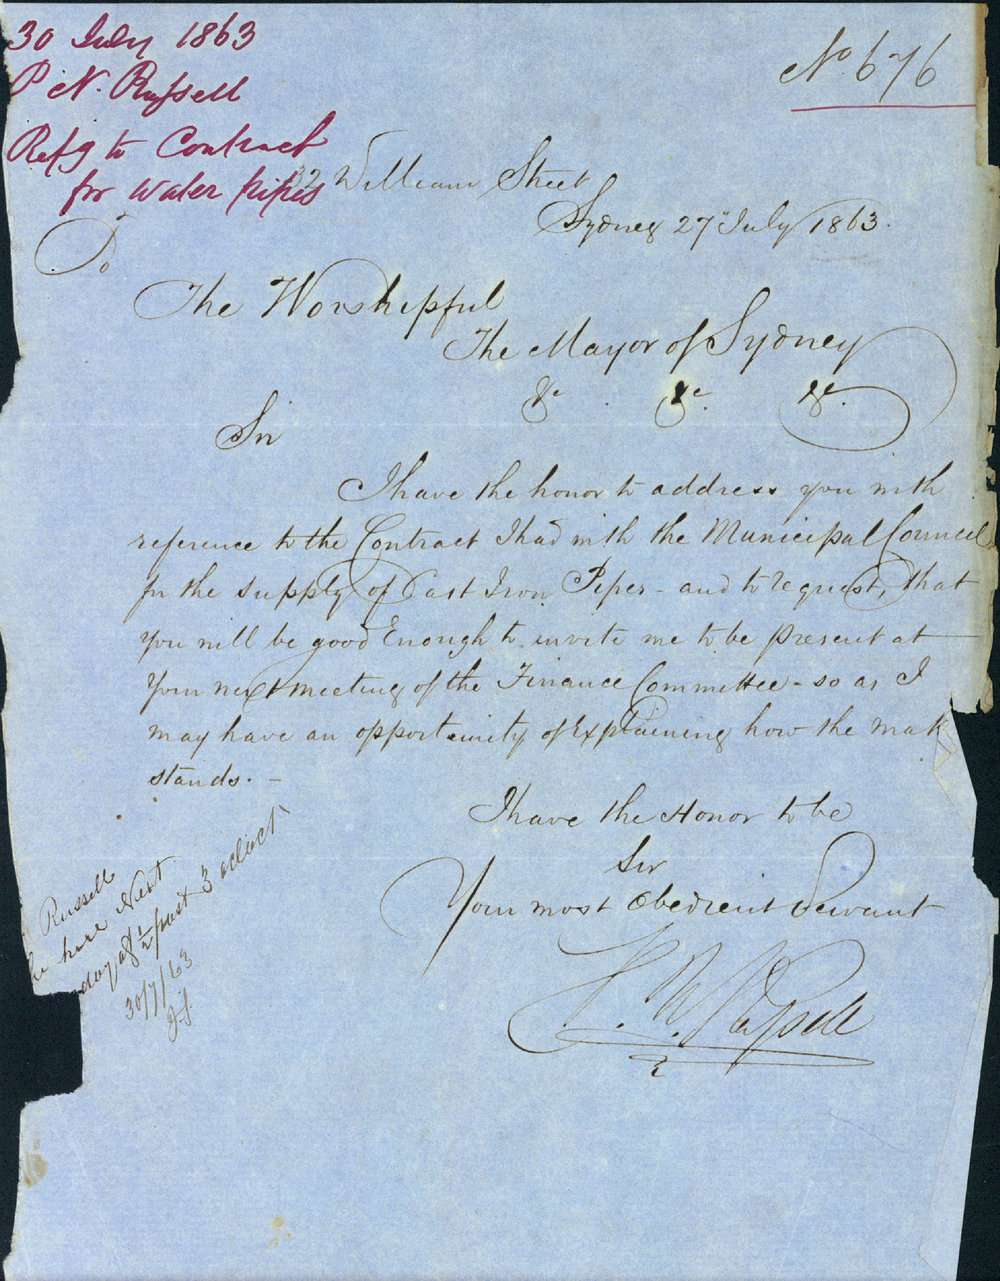 30 July 1863
P N. Russell
Refg to Contract
for water pipes
No 676
32 William Street
Sydney 27 July 1863.
To
The Worshipful
The Mayor of Sydney
&c . &c. &c.
Sir
I have the honor to address you with
reference to the Contract I had with the Municipal Council
for the supply of Cast Iron Pipes - and to request, that
you will be good Enough to invite me to be present at
Your next meeting of the Finance Committee - so as I
may have an opportunity of Explaining how the matt
stands. -
I have the Honor to be
Sir
Your most Obedient Servant
P. N. Russell
Russell
be here Next
day at ½ past 3 oclock
30/7/63